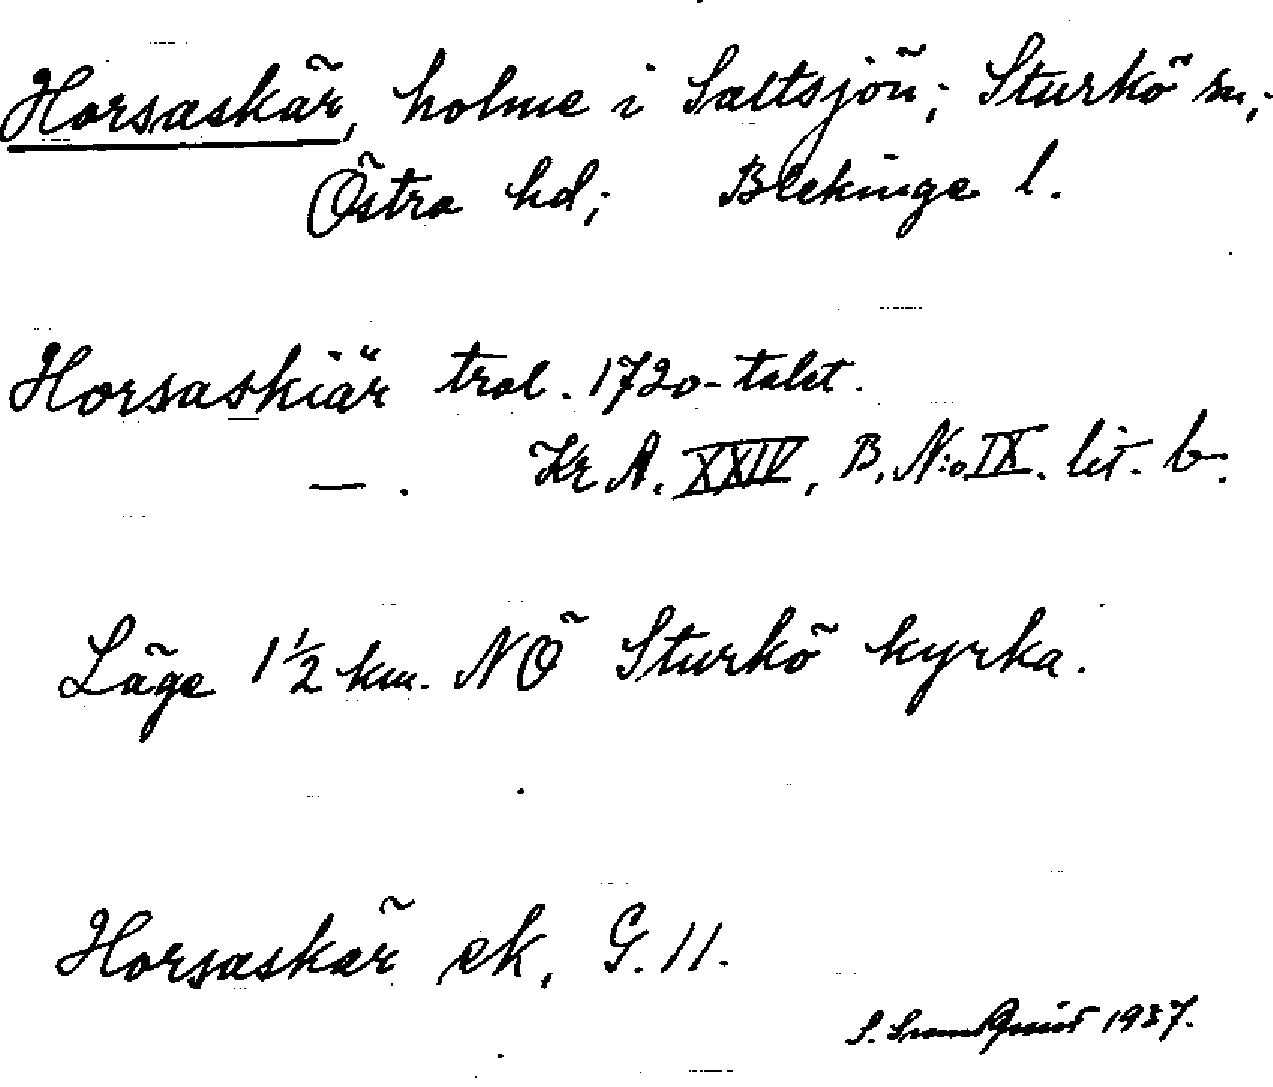 Horsaskär, holme i Saltsjön; Sturkö sn;
Östra hd; Blekinge l.
Horsaskiär trol. 1720-talet.
— . Kr A. XXIV, B. N:o IX. lit. b.
Läge 1 1/2 km. NO Sturkö kyrka.
Horsaskär ek. G. 11.
S. 1937.